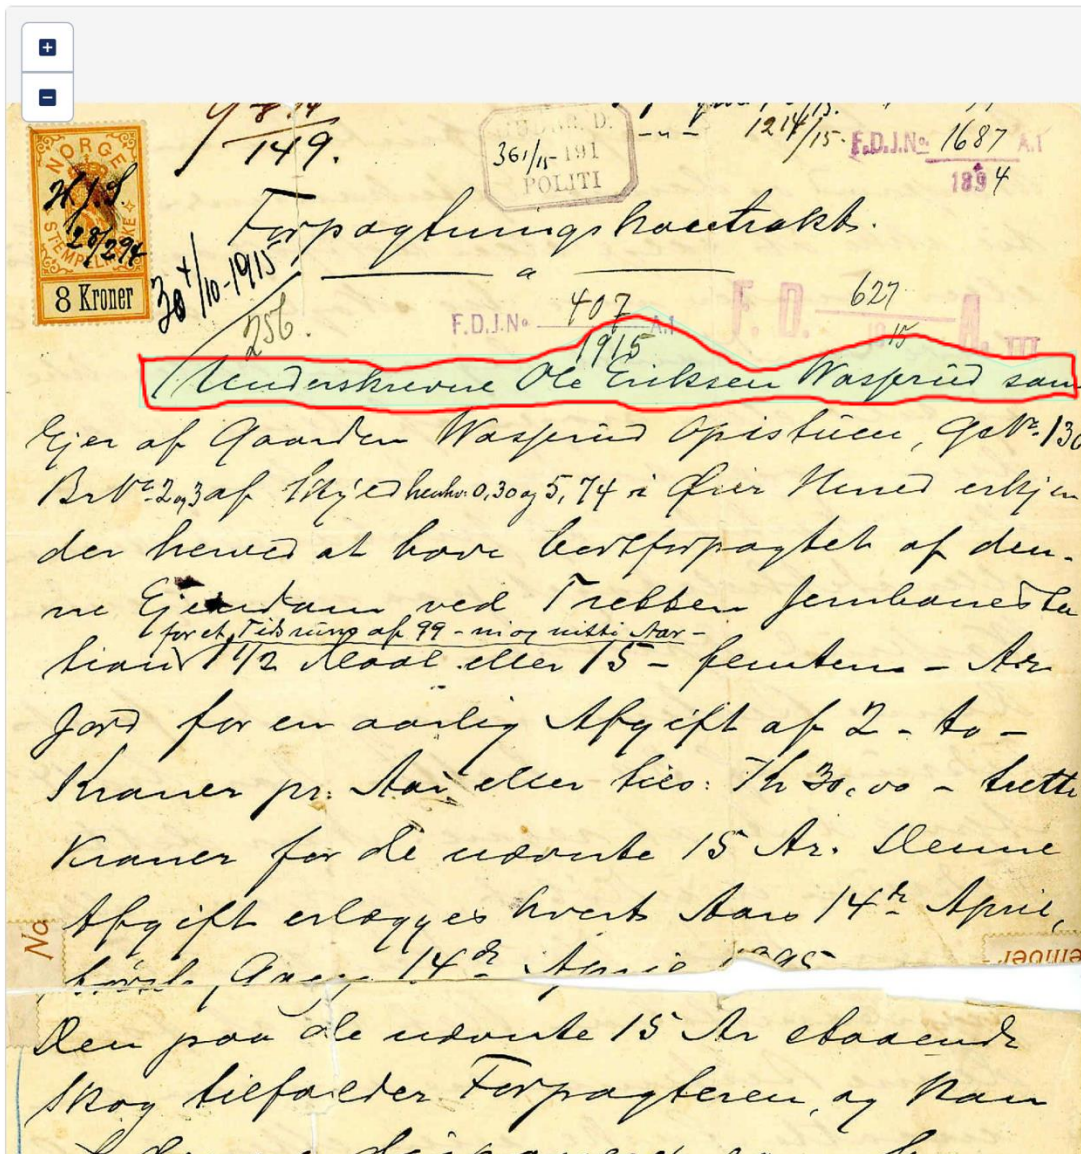 149.
361/15-191
POLITI
-"- 1214/15.
F.D.J.No 1687 A.1
1894
NORGE
H.J.S.
28/294
STEMPELMÆRKE
8 Kroner
Forpagtningskontrakt.
30 4/10-1915
256.
F.D.J.No 407 A.1
1915
F. D. 627 A. III
1915
Underskrevne Ole Eriksen Wasrud som
Ejer af Gaarden Wasrud Opistuen, GNr. 130
BrNr. 2 og 3 af Skyld henhv. 0,30 og 5,74 i Øier Herred erkjen
der herved at have bortforpagtet af den-
ne Ejendom ved Tretten Jernbanesta
for et Tidsrum af 99 - ni og nitti Aar -
tion 1 1/2 Maal eller 15 - femten - Ar
Jord for en aarlig Afgift af 2 - to -
Kroner pr. Ar eller tils: Kr 30,00 - tretti
Kroner for de udviste 15 Ar. Denne
Afgift erlægges hvert Aars 14de April,
første Gang 14de April 1895
Na
Den paa de udviste 15 Ar staaende
Skog tilfalder Forpagteren, og kan